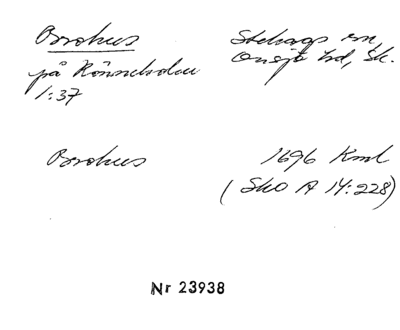 Brohus
Stehags sn,
på Rönneholm
Onsjö hd, Sk.
1:37
Brohus
1696 Kml
(SkO A 14:228)
Nr 23938